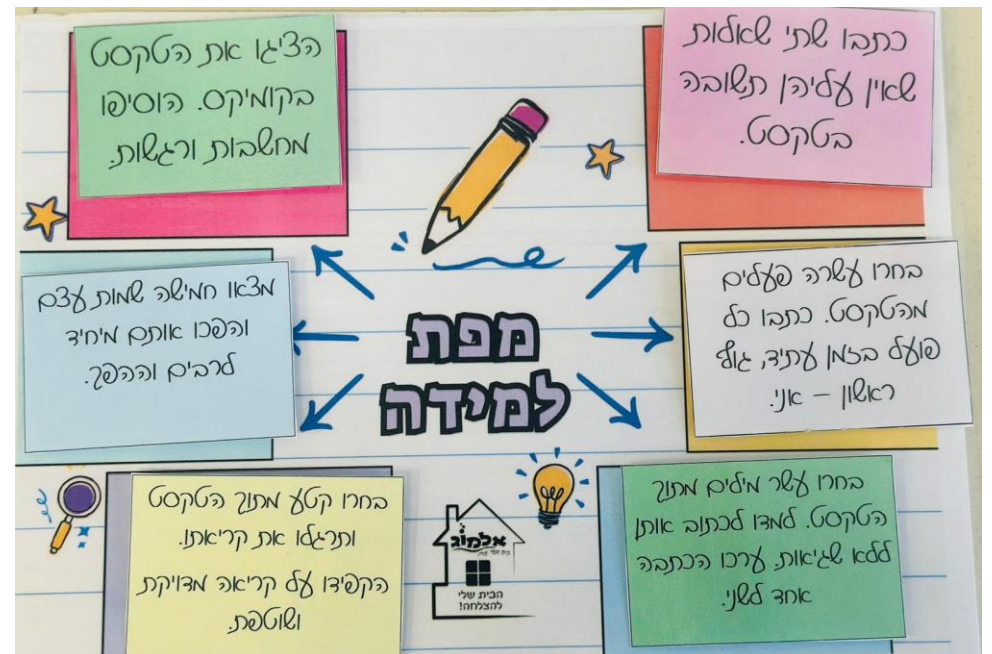 כתבו שתי שאלות
שאין עליהן תשובה
בטקסט.
הציגו את הטקסט
בקומיקס. הוסיפו
מחשבות ורגשות.
בחרו עשרה פעלים
מהטקסט. כתבו כל
פועל בזמן עתיד, גוף
ראשון – אני.
מצאו חמישה שמות עצם
והפכו אותם מיחיד
לרבים וההפך.
מפת
למידה
בחרו עשר מילים מתוך
הטקסט. למדו לכתוב אותן
ללא שגיאות. ערכו הכתבה
אחד לשני.
בחרו קטע מתוך הטקסט
ותרגלו את קריאתו.
הקפידו על קריאה מדויקת
ושוטפת.
אלמוג
הבית שלי
להצלחה!